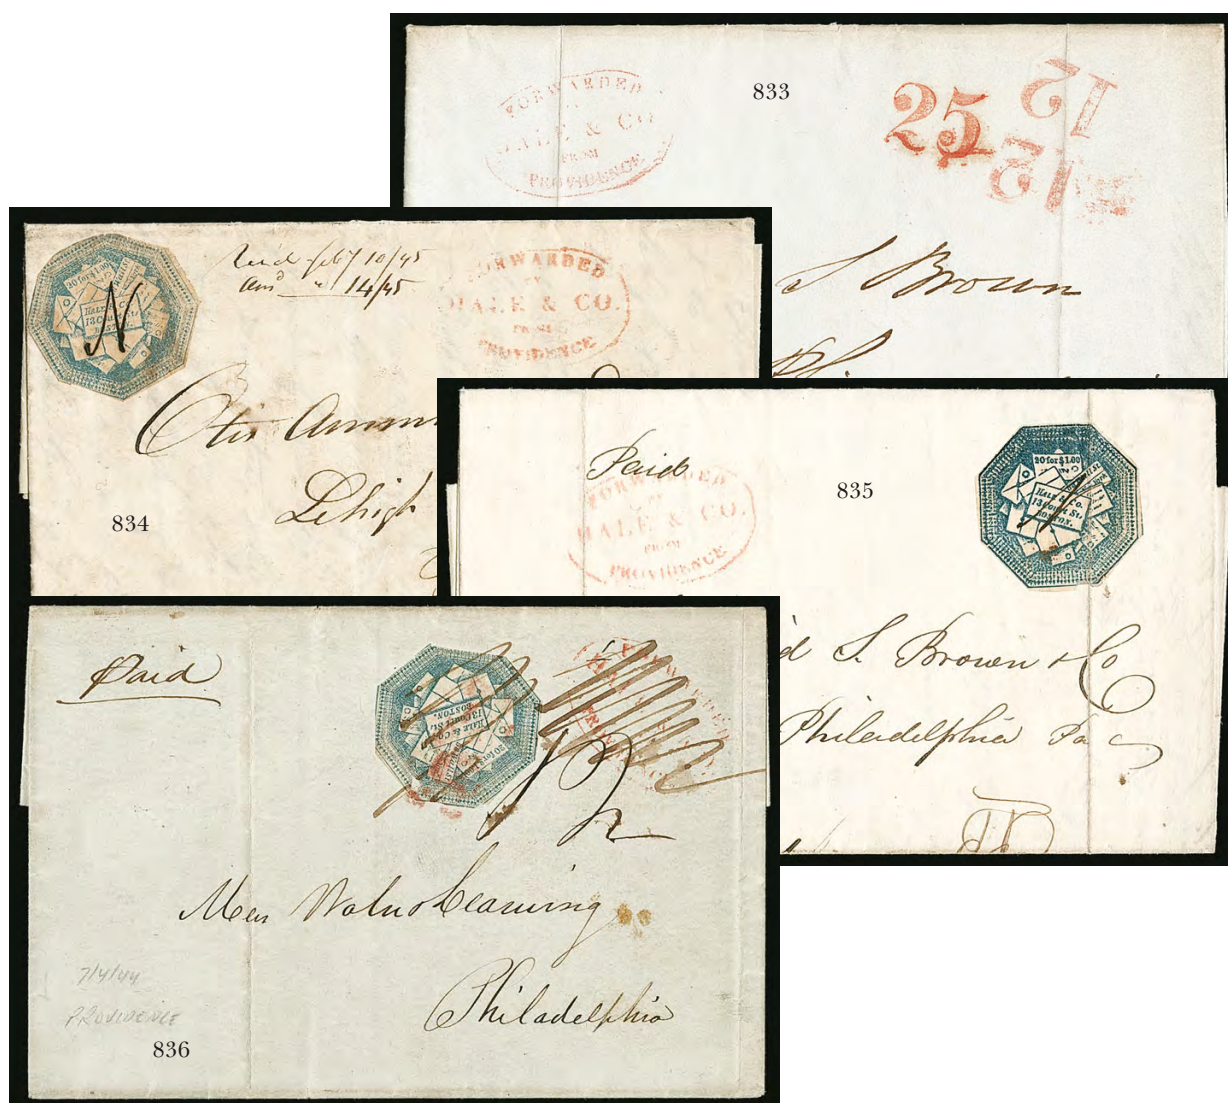 FORWARDED
HALE & CO
FROM
PROVIDENCE
833
25
12
12
S Brown
20 for $1.00
HALE & Co.
13 Court St.
BOSTON.
N
Rec'd Feb'y 10/45
Ans'd " 14/45
FORWARDED
BY
HALE & CO.
FROM
PROVIDENCE
Otis
Lehigh
834
Paid
FORWARDED
BY
HALE & CO.
FROM
PROVIDENCE
835
20 for $1.00
HALE & Co.
13 Court St.
BOSTON.
N
d S. Brown & Co
Philadelphia Pa
Paid
20 for
HALE & Co.
13 Court St.
BOSTON.
12
Philadelphia
7/4/44
PROVIDENCE
836